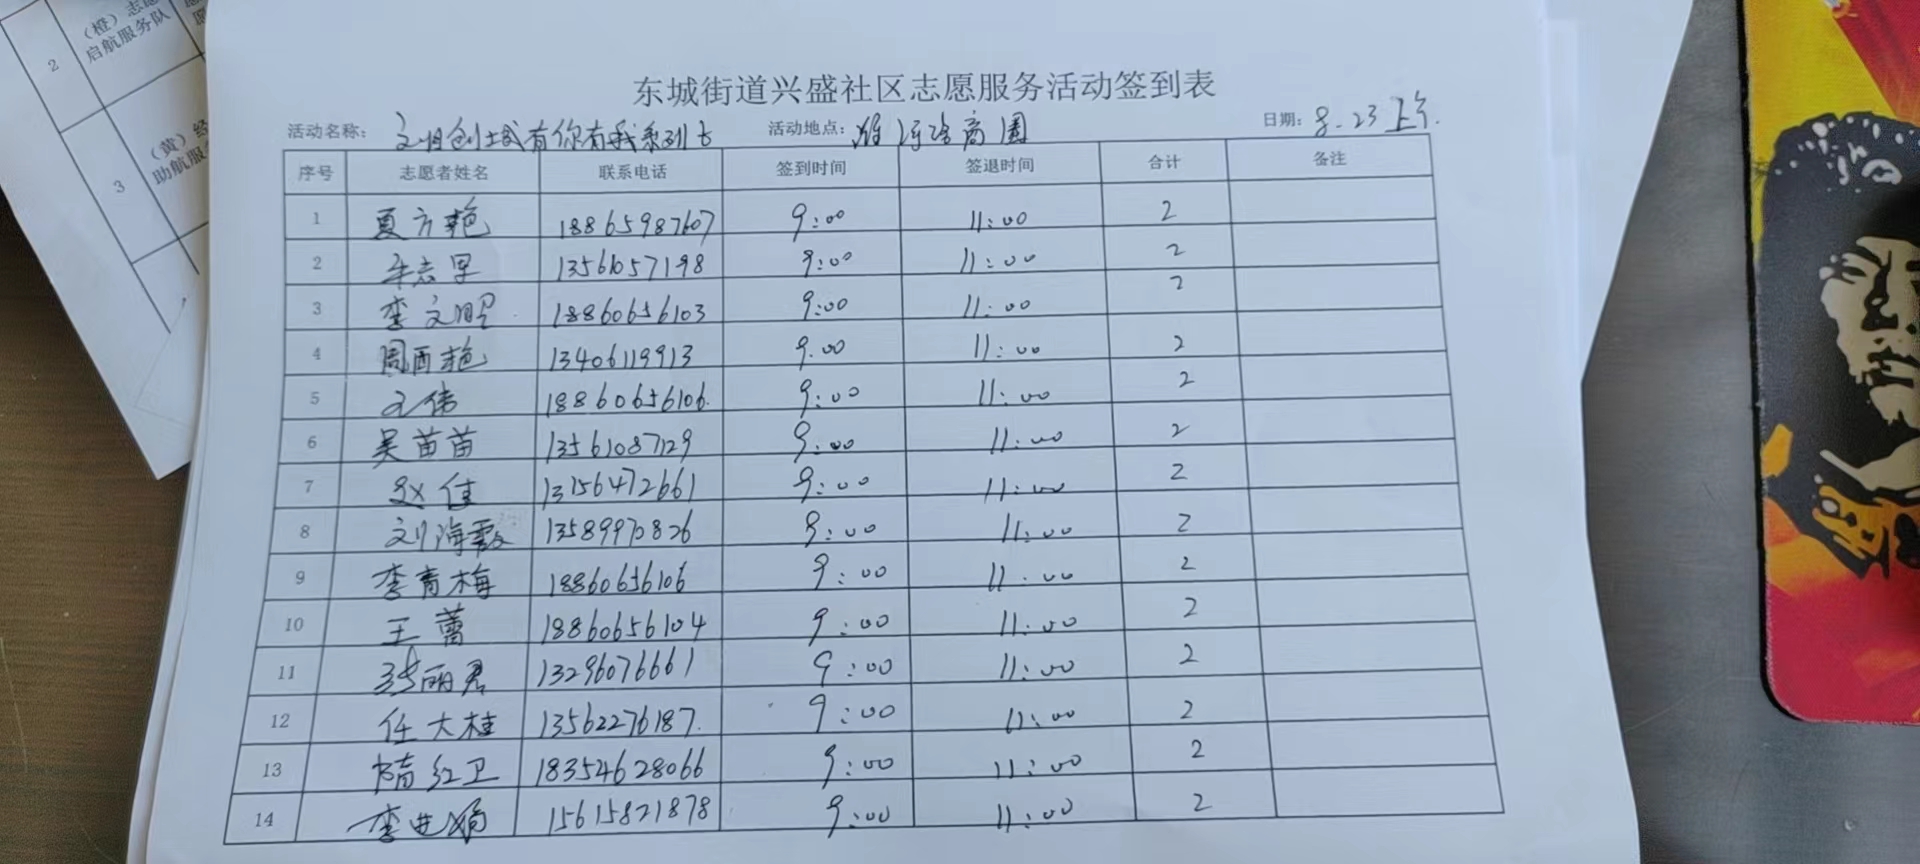 2
(橙)志愿
启航服务队
3
(黄)经
助航服务
东城街道兴盛社区志愿服务活动签到表
活动名称: 文明创城有你有我系列 活动地点: 商圈 日期: 8.23上午.
序号 志愿者姓名 联系电话 签到时间 签退时间 合计 备注
1 夏方艳 18865987607 9:00 11:00 2
2 志军 13561057198 9:00 11:00 2
3 李文明 18860656103 9:00 11:00 2
4 周西艳 13406119913 9.00 11:00 2
5 王伟 18860656106. 9:00 11:00 2
6 吴苗苗 13561087129 9:00 11:00 2
7 赵佳 13156472661 9:00 11:00 2
8 刘海霞 13589970826 9:00 11:00 2
9 李青梅 18860656106 9:00 11:00 2
10 王蕾 18860656104 9:00 11:00 2
11 张丽君 13296076661 9:00 11:00 2
12 任大桂 13562276187. 9:00 11:00 2
13 隋红卫 18354628066 9:00 11:00 2
14 李 娟 15615821878 9:00 11:00 2